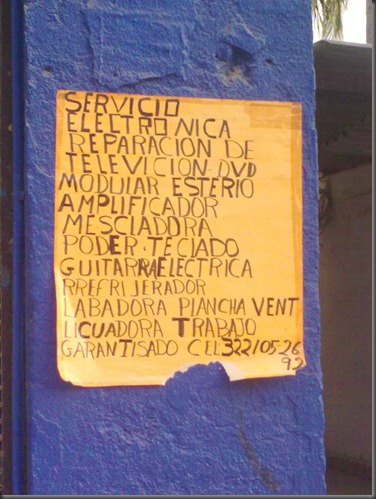 SERVICIO
ELECTRONICA
REPARACION DE
TELEVICION. DVD
MODULAR ESTERIO
AMPLIFICADOR
MESCLADORA
PODER. TECLADO
GUITARRAELECTRICA
RREFRIJERADOR
LABADORA PLANCHA VENT
LICUADORA TRABAJO
GARANTISADO CEL 322/05 26
92